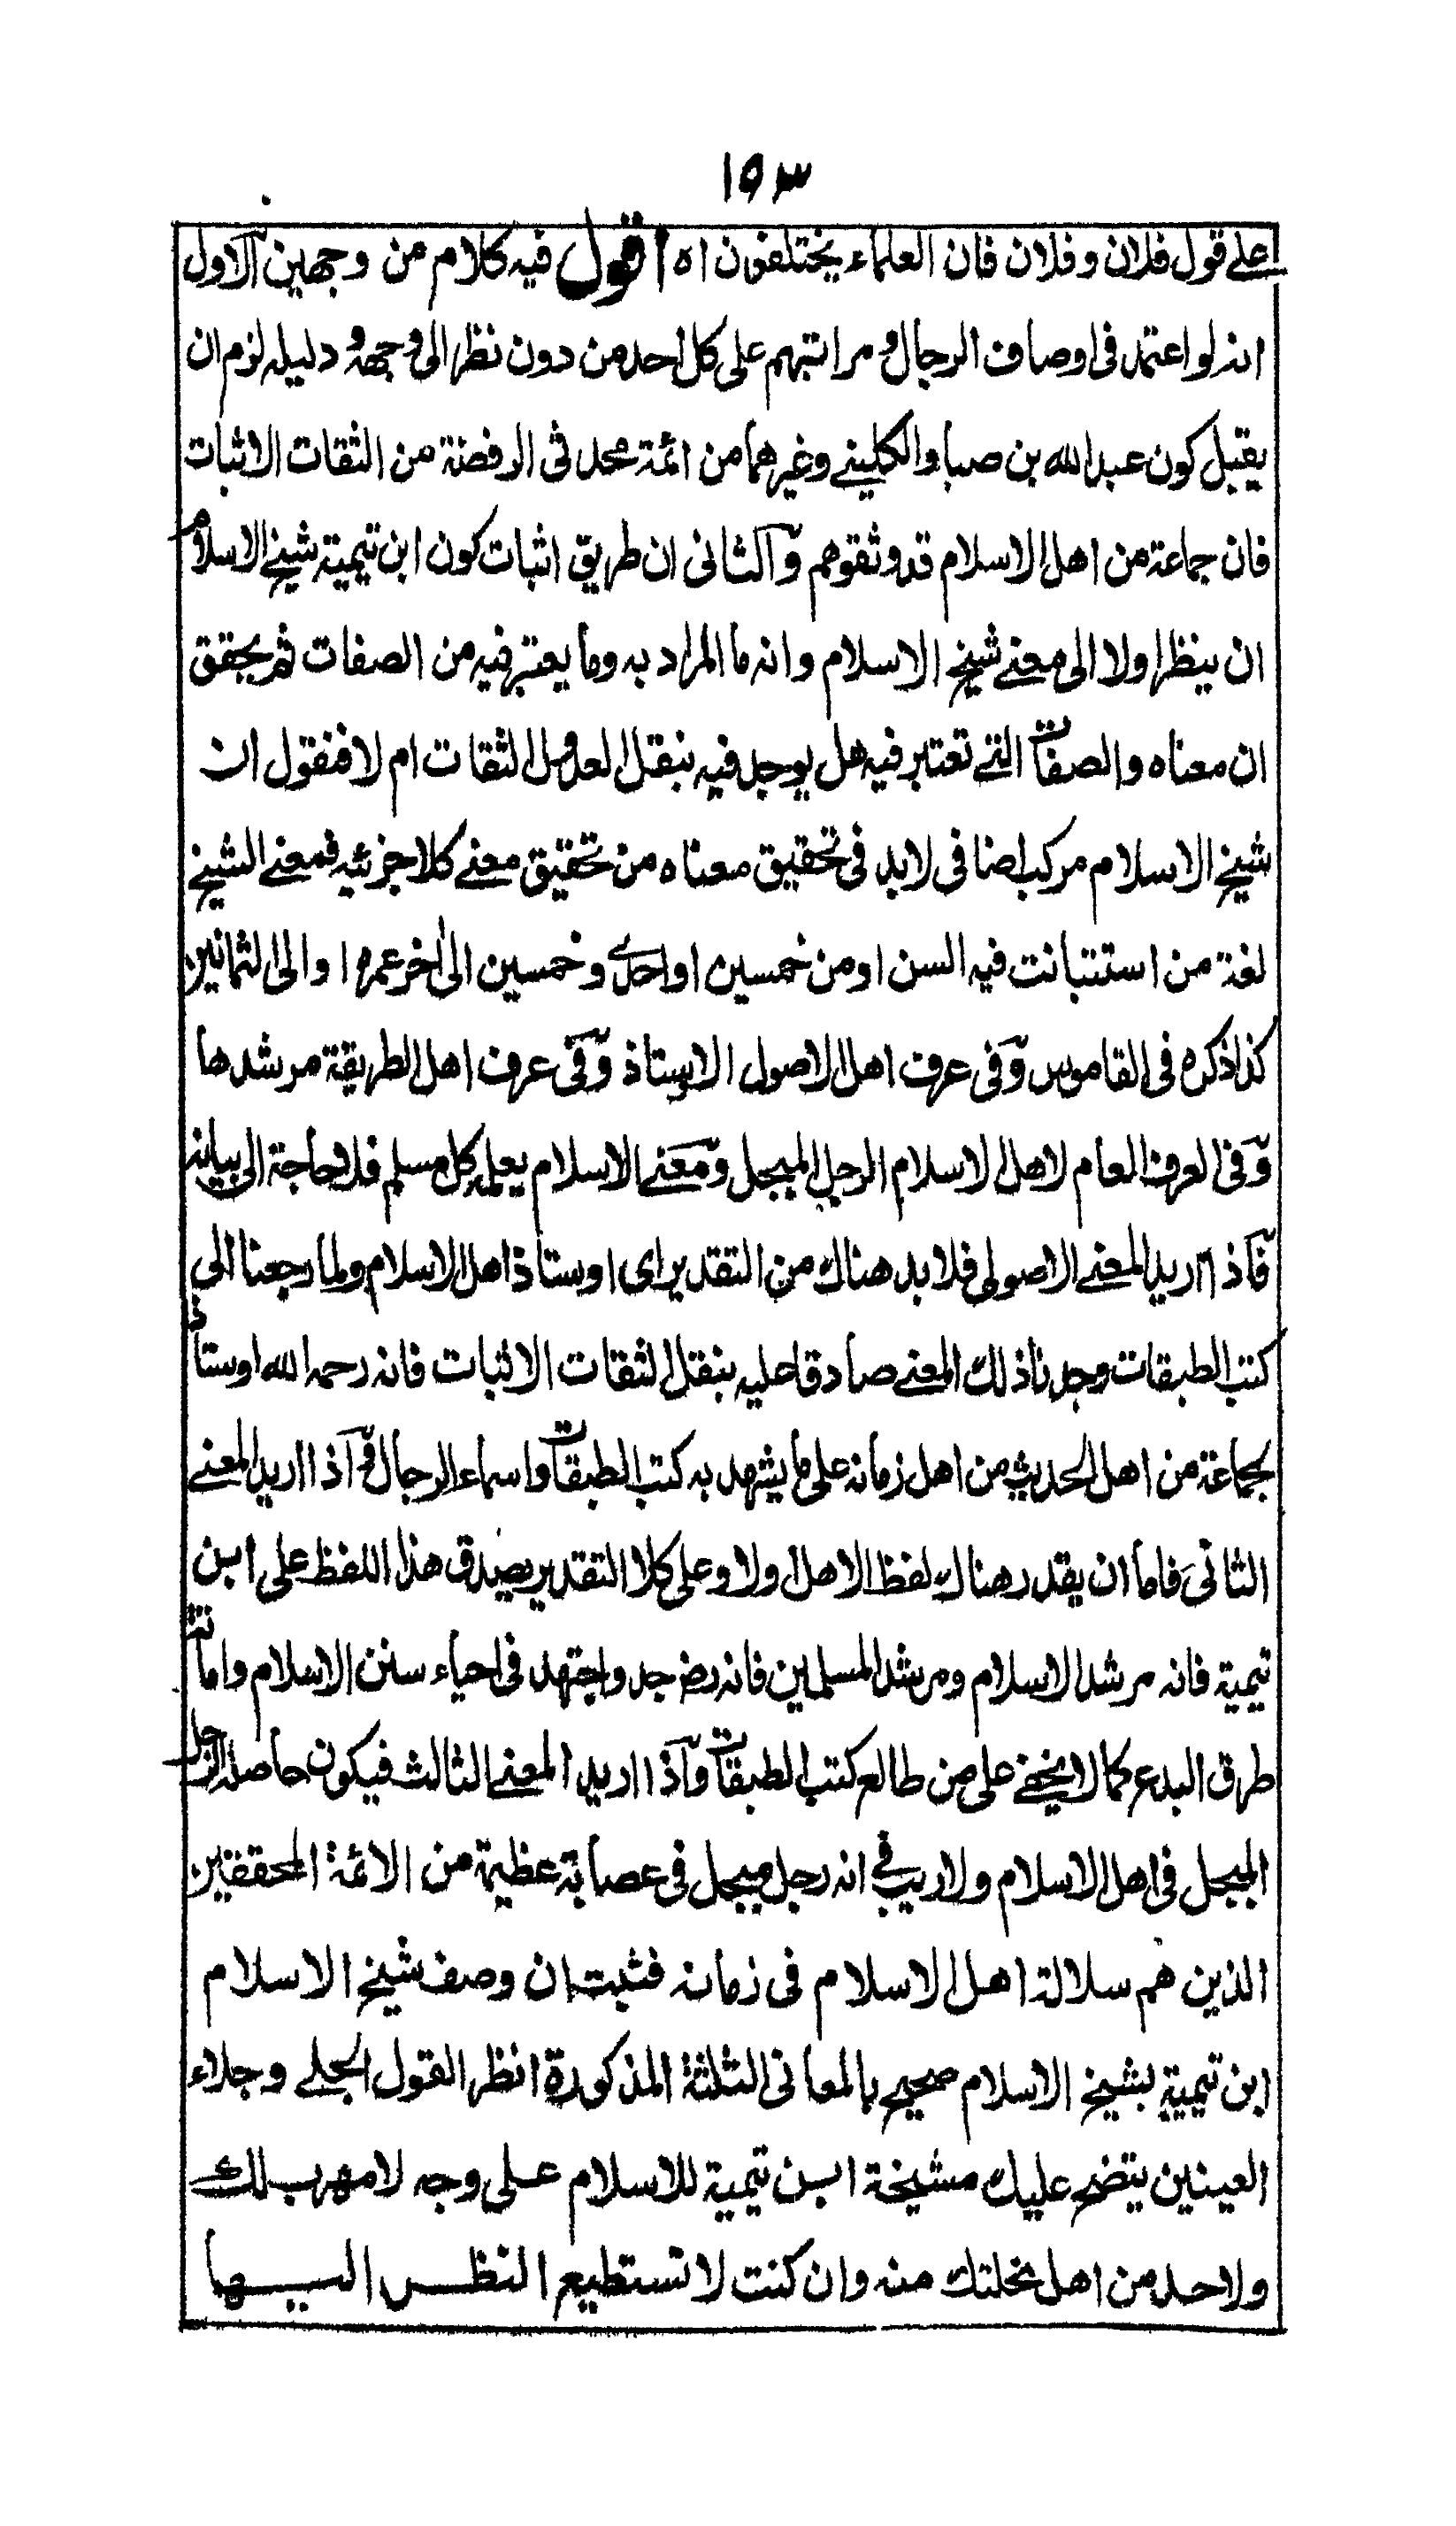 ١٥٣
على قول فلان وفلان فان العلماء يختلفون اه اقول فيه كلام من وجهين الاول
انه لو اعتمد فى اوصاف الرجال ومراتبهم على كل احد من دون نظر الى وجهه ودليله لزم ان
يقبل كون عبد الله بن صبا والكلينى وغيرهما من ائمة محدثى الرفضة من الثقات الاثبات
فان جماعة من اهل الاسلام قد وثقوهم والثانى ان طريق اثبات كون ابن تيمية شيخ الاسلام
ان ينظر اولا الى معنى شيخ الاسلام وانه ما المراد به وما يعتبر فيه من الصفات ثم يحقق
ان معناه والصفات التى تعتبر فيه هل يوجد فيه بنقل العدول الثقات ام لا فنقول ان
شيخ الاسلام مركب اضافى لابد فى تحقيق معناه من تحقيق معنى كلا جزئيه فمعنى الشيخ
لغة من استتبانت فيه السن او من خمسين او احدى وخمسين الى اخر عمره او الى الثمانين
كذا ذكره فى القاموس وفى عرف اهل الاصول الاستاذ وفى عرف اهل الطريقة مرشدها
وفى العرف العام لاهل الاسلام الرجل المبجل ومعنى الاسلام يعلمه كل مسلم فلا حاجة الى بيانه
فاذا اريد المعنى الاصولى فلابد هناك من التقدير اى اوستاذ اهل الاسلام ولما رجعنا الى
كتب الطبقات وجدنا ذلك المعنى صادقا عليه بنقل الثقات الاثبات فانه رحمه الله اوستاذ
لجماعة من اهل الحديث من اهل زمانه على ما يشهد به كتب الطبقات واسماء الرجال واذا اريد المعنى
الثانى فاما ان يقدر هناك لفظ الاهل اولا وعلى كلا التقدير يصدق هذا اللفظ على ابن
تيمية فانه مرشد الاسلام ومرشد المسلمين فانه رض جد واجتهد فى احياء سنن الاسلام واماتة
طرق البدع كما لا يخفى على من طالع كتب الطبقات واذا اريد المعنى الثالث فيكون حاصله الرجل
المبجل فى اهل الاسلام ولا ريب فى انه رجل مبجل فى عصابة عظيمة من الائمة المحققين
الذين هم سلالة اهل الاسلام فى زمانه فثبت ان وصف شيخ الاسلام
ابن تيمية بشيخ الاسلام صحيح بالمعانى الثلثة المذكورة انظر القول الجلى وجلاء
العينين يتضح عليك مشيخة ابن تيمية للاسلام على وجه لا مهرب لك
ولاحد من اهل نحلتك منه وان كنت لا تستطيع النظر اليها